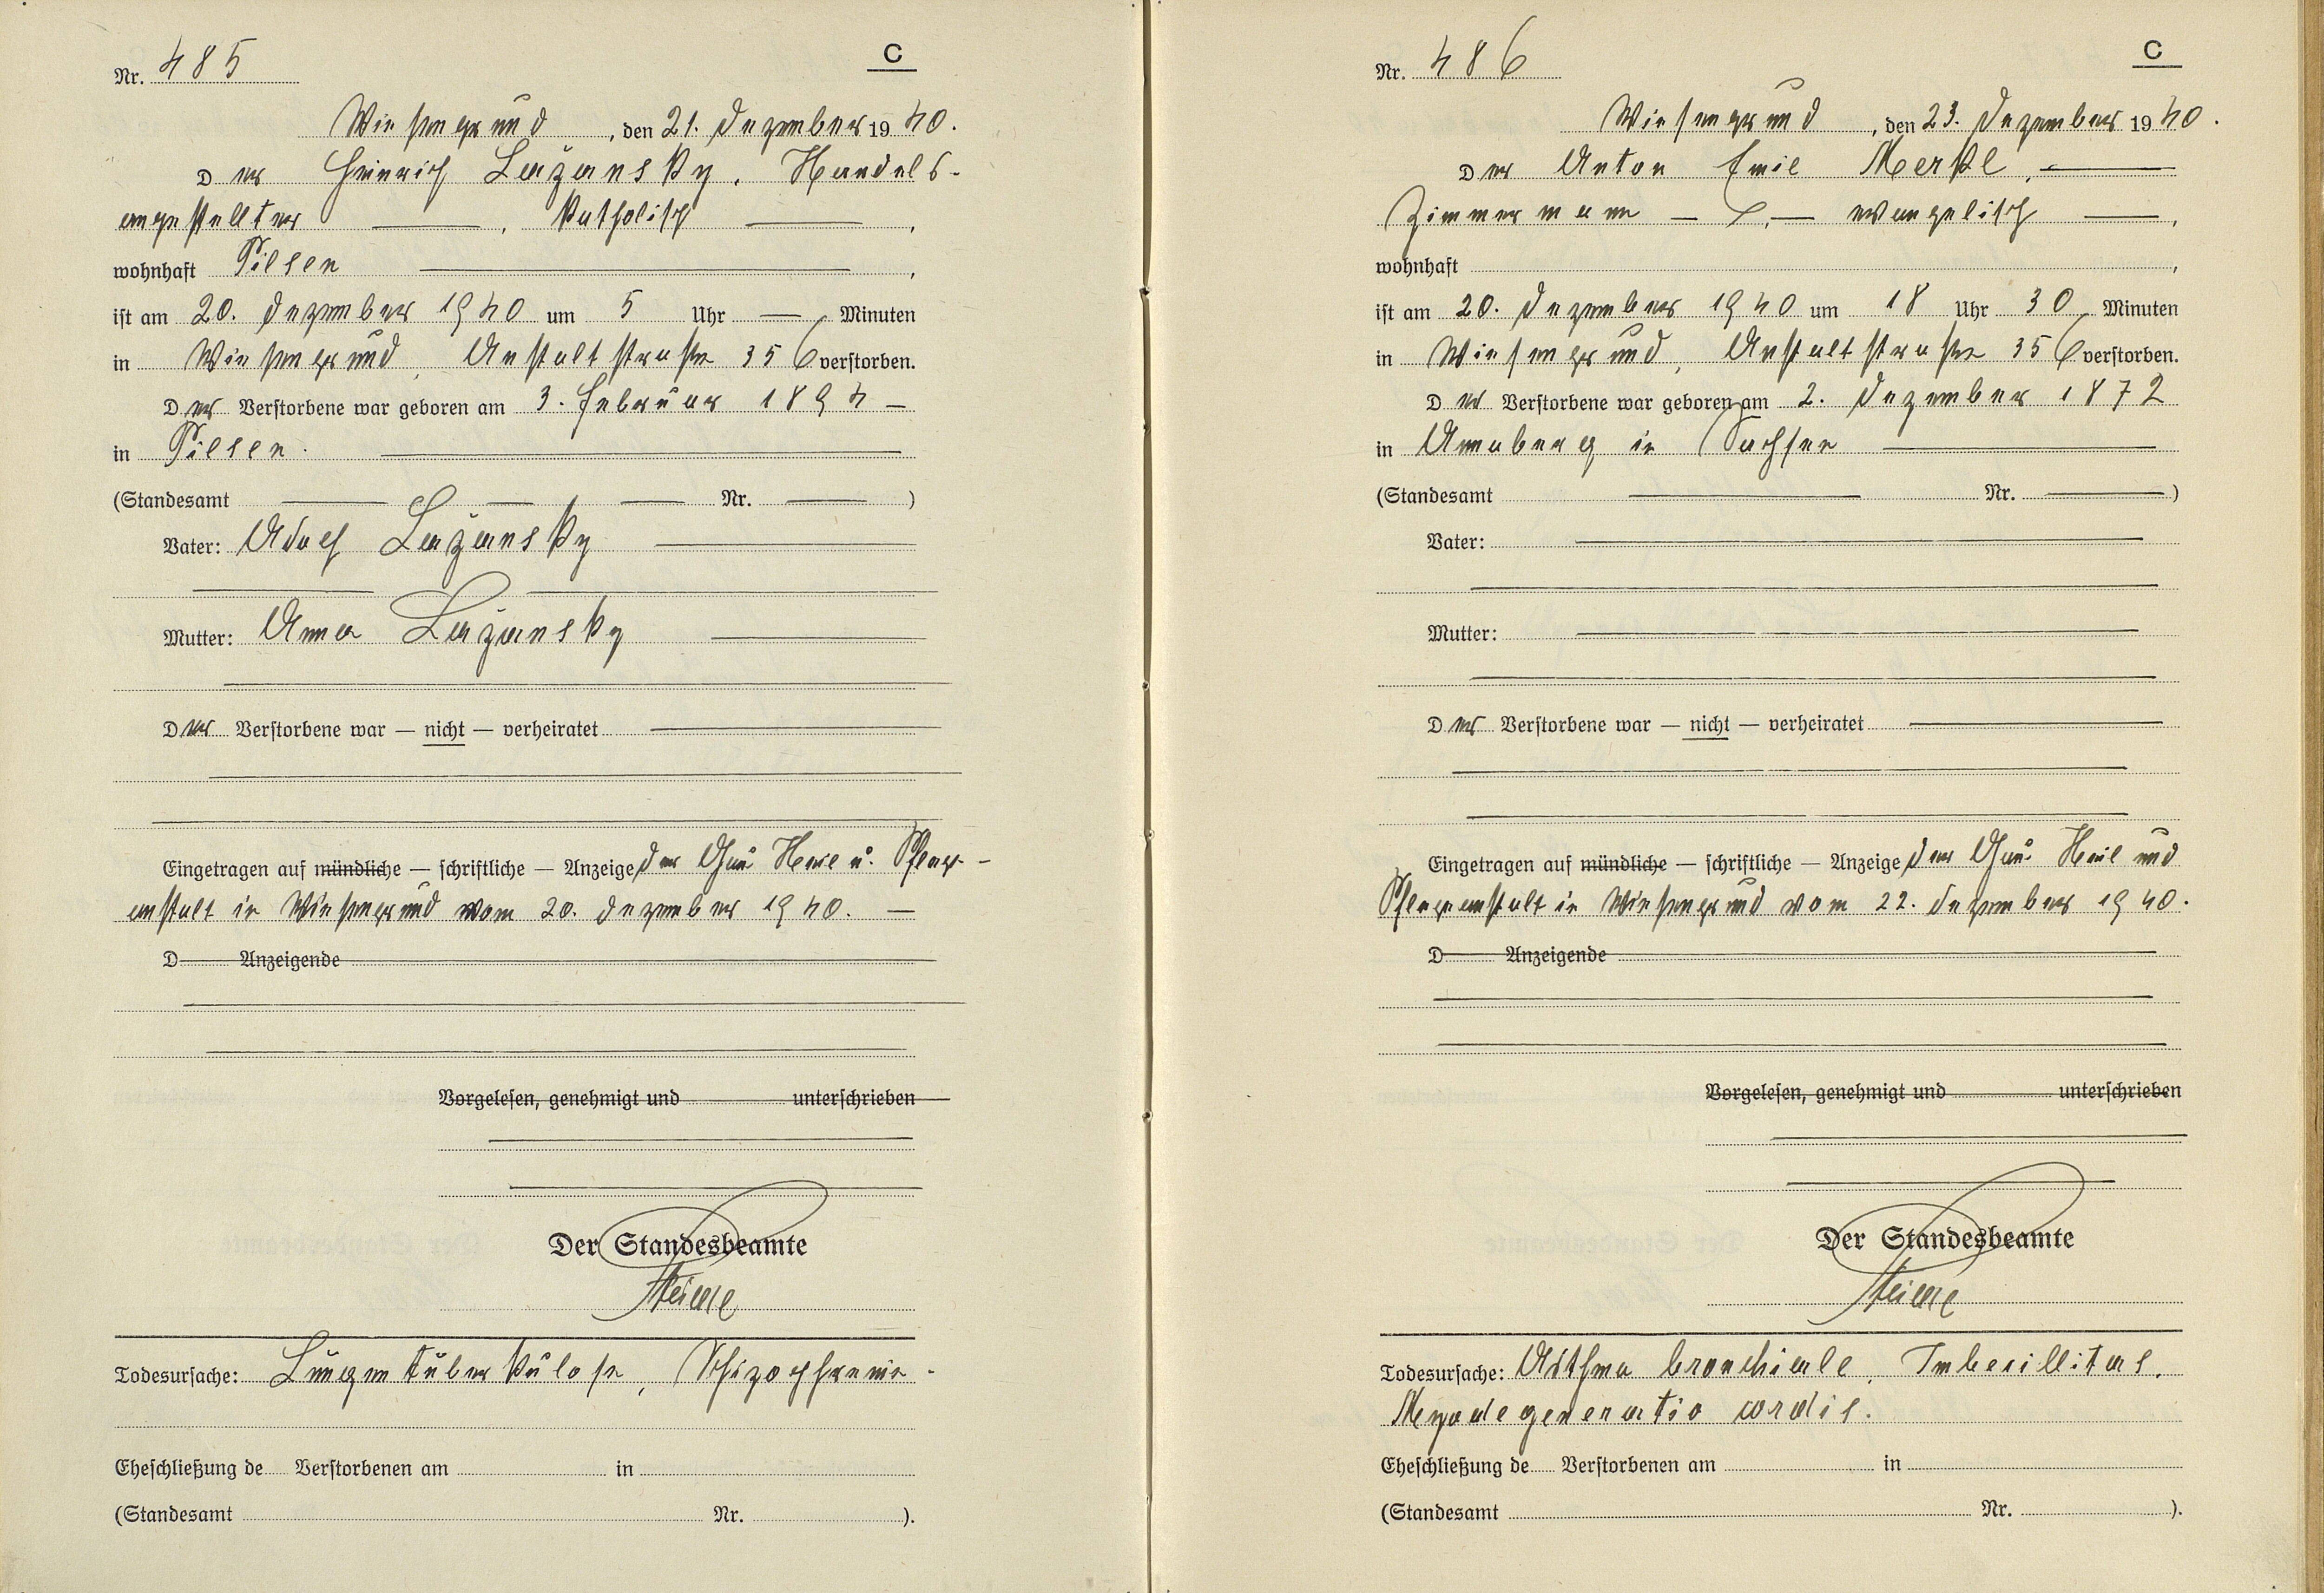 C
Nr. 485
Wiesengrund, den 21. Dezember 1940.
Der Heinrich Lažansky, Handels-
angestellter —, katholisch —,
wohnhaft Pilsen —,
ist am 20. Dezember 1940 um 5 Uhr — Minuten
in Wiesengrund, Anstaltstraße 356 verstorben.
Der Verstorbene war geboren am 3. Februar 1894 —
in Pilsen. —
(Standesamt — — — Nr. —)
Vater: Adolf Lažansky —
Mutter: Anna Lažansky —
Der Verstorbene war — nicht — verheiratet —
Eingetragen auf mündliche — schriftliche — Anzeige der Gau Heil u. Pflege-
anstalt in Wiesengrund vom 20. Dezember 1940. —
D Anzeigende
Vorgelesen, genehmigt und unterschrieben
Der Standesbeamte
Todesursache: Lungentuberkulose, Schizophrenie.
Eheschließung de Verstorbenen am in
(Standesamt Nr. ).
C
Nr. 486
Wiesengrund, den 23. Dezember 1940.
Der Anton Emil Merkl, —
Zimmermann —, — evangelisch —,
wohnhaft ,
ist am 20. Dezember 1940 um 18 Uhr 30 Minuten
in Wiesengrund, Anstaltstraße 356 verstorben.
Der Verstorbene war geboren am 2. Dezember 1872
in Annaberg in Sachsen —
(Standesamt — Nr. —)
Vater: —
Mutter: —
Der Verstorbene war — nicht — verheiratet —
Eingetragen auf mündliche — schriftliche — Anzeige der Gau Heil und
Pflegeanstalt in Wiesengrund vom 22. Dezember 1940.
D Anzeigende
Vorgelesen, genehmigt und unterschrieben
Der Standesbeamte
Todesursache: Asthma bronchiale, Imbecillitas,
Myodegeneratio cordis.
Eheschließung de Verstorbenen am in
(Standesamt Nr. ).